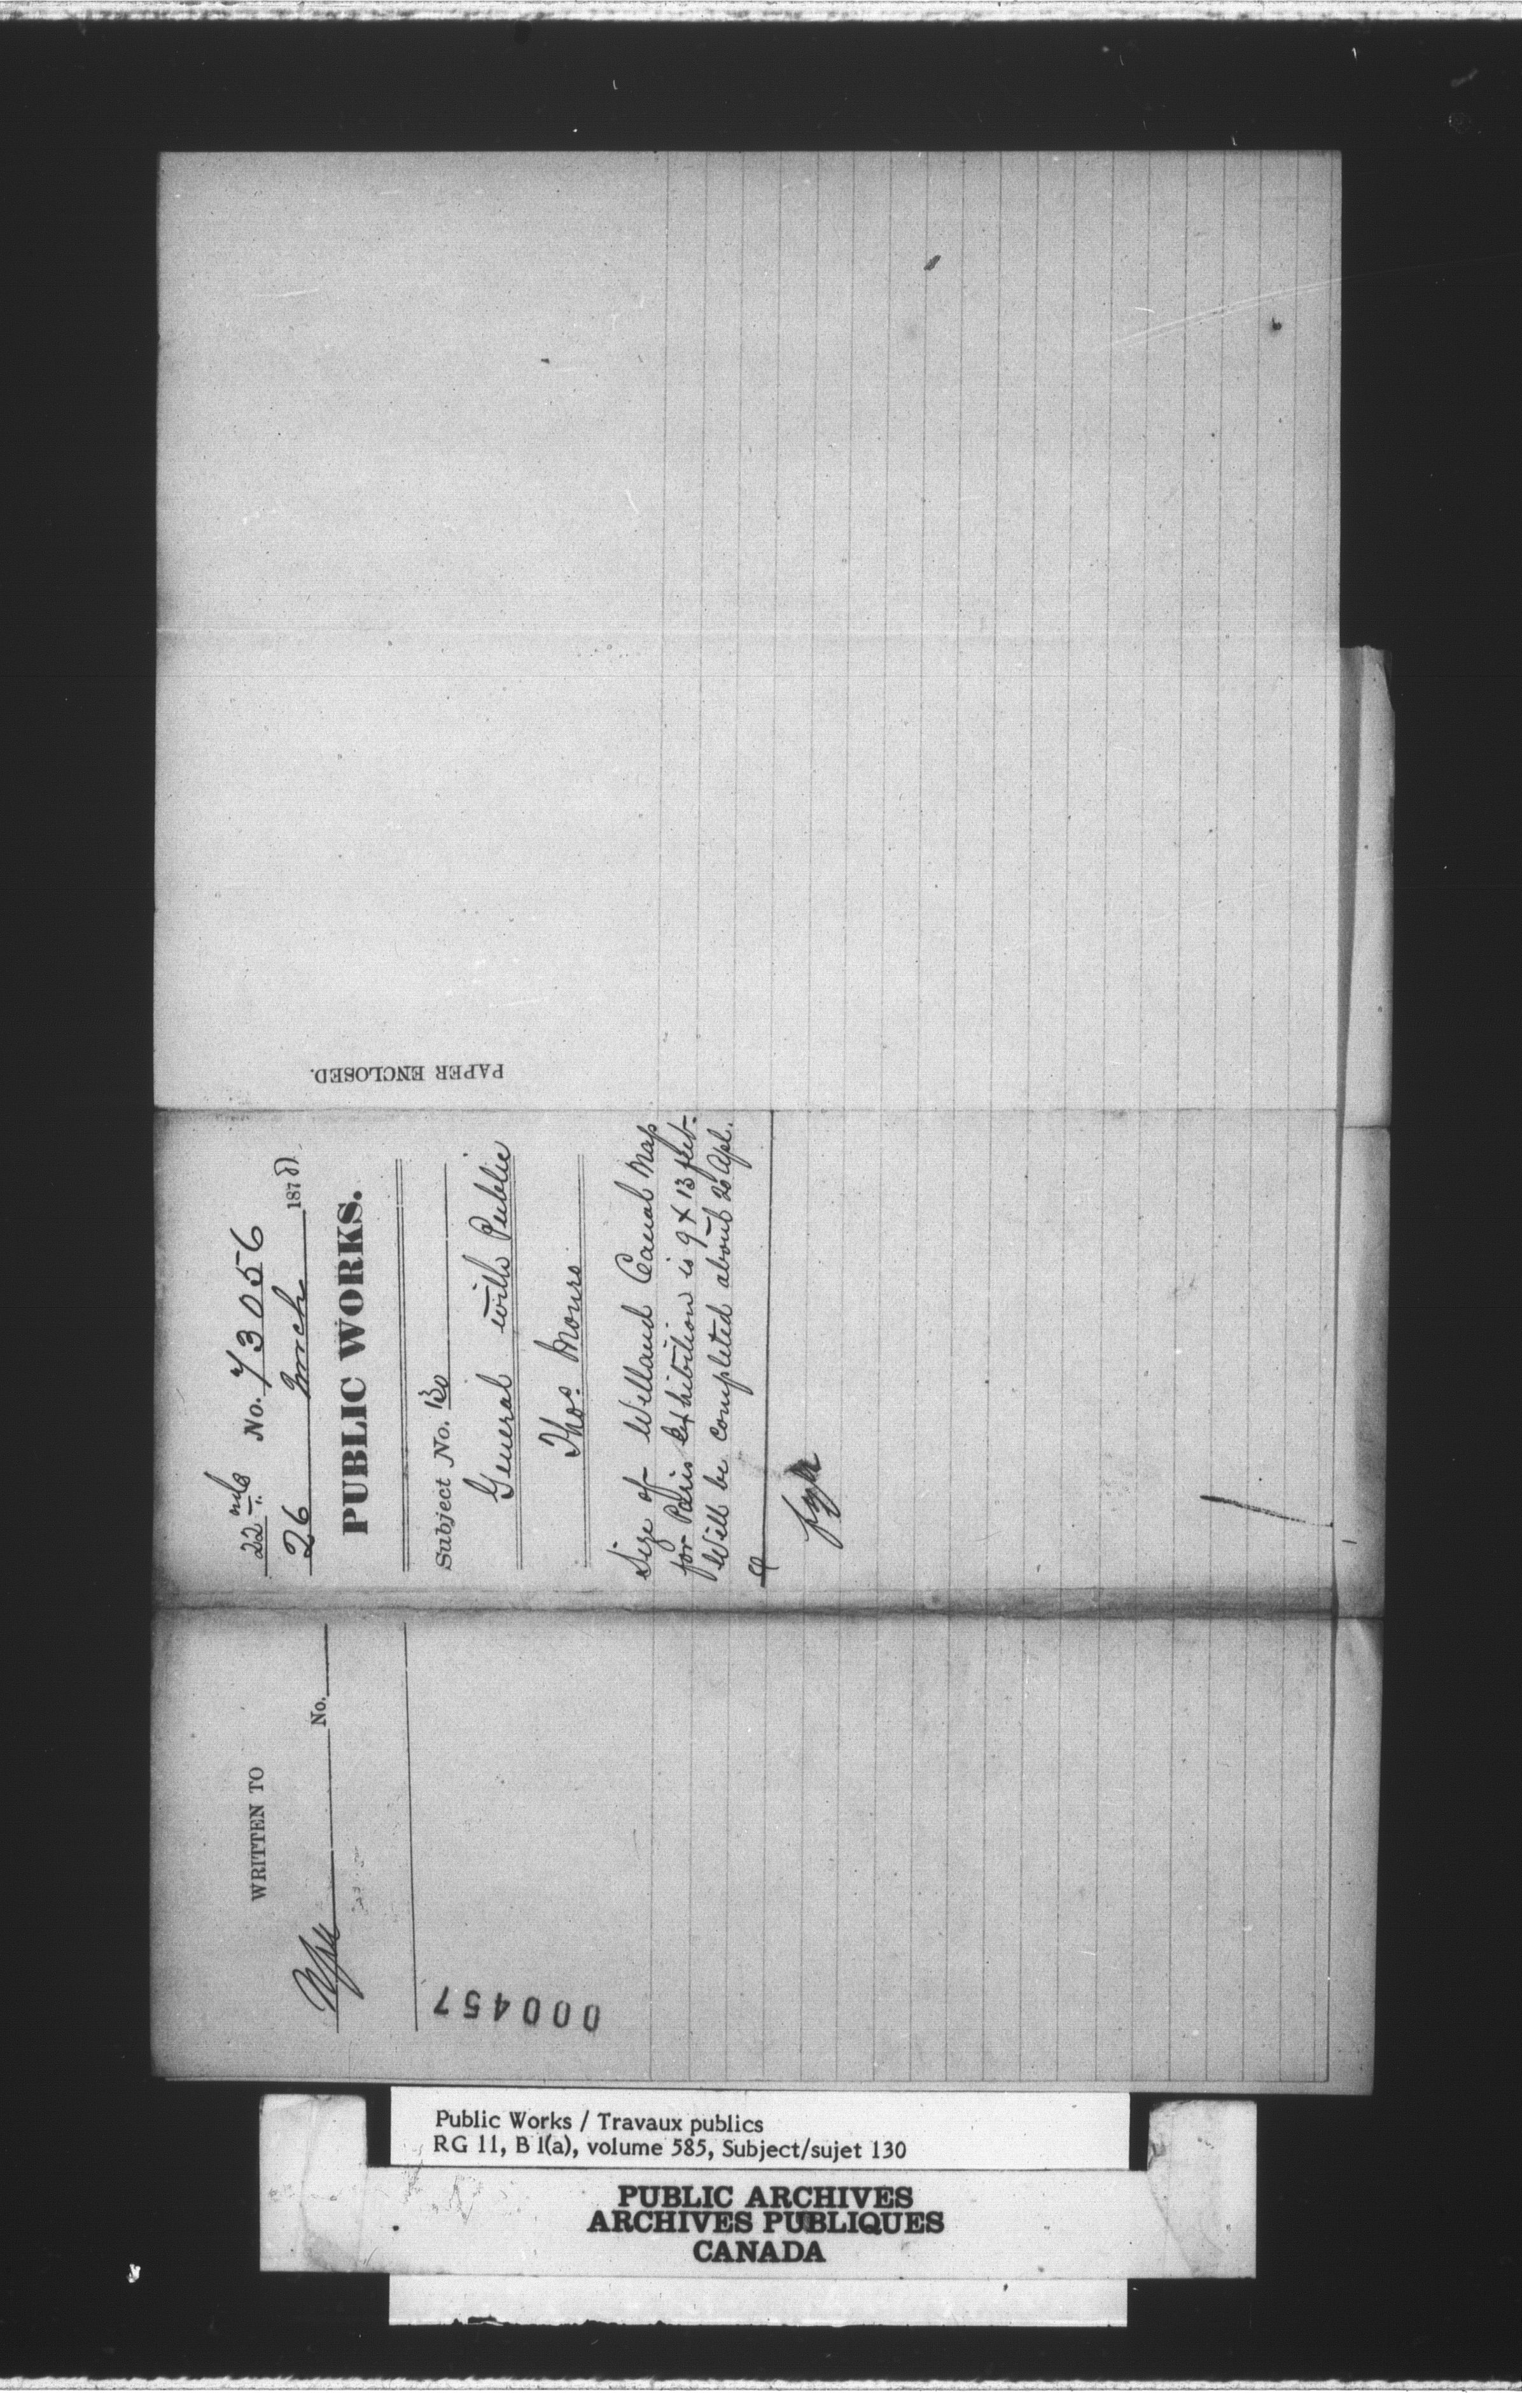 22nd No. 73056
26 March 1878
PUBLIC WORKS.
Subject No. 130
General with Public
Thos. Monro
Size of Welland Canal Map
for Paris Exhibition is 9 x 13 feet.
Will be completed about 20 Apl.
PAPER ENCLOSED.
WRITTEN TO
No.
000457
Public Works / Travaux publics
RG 11, B 1(a), volume 585, Subject/sujet 130
PUBLIC ARCHIVES
ARCHIVES PUBLIQUES
CANADA